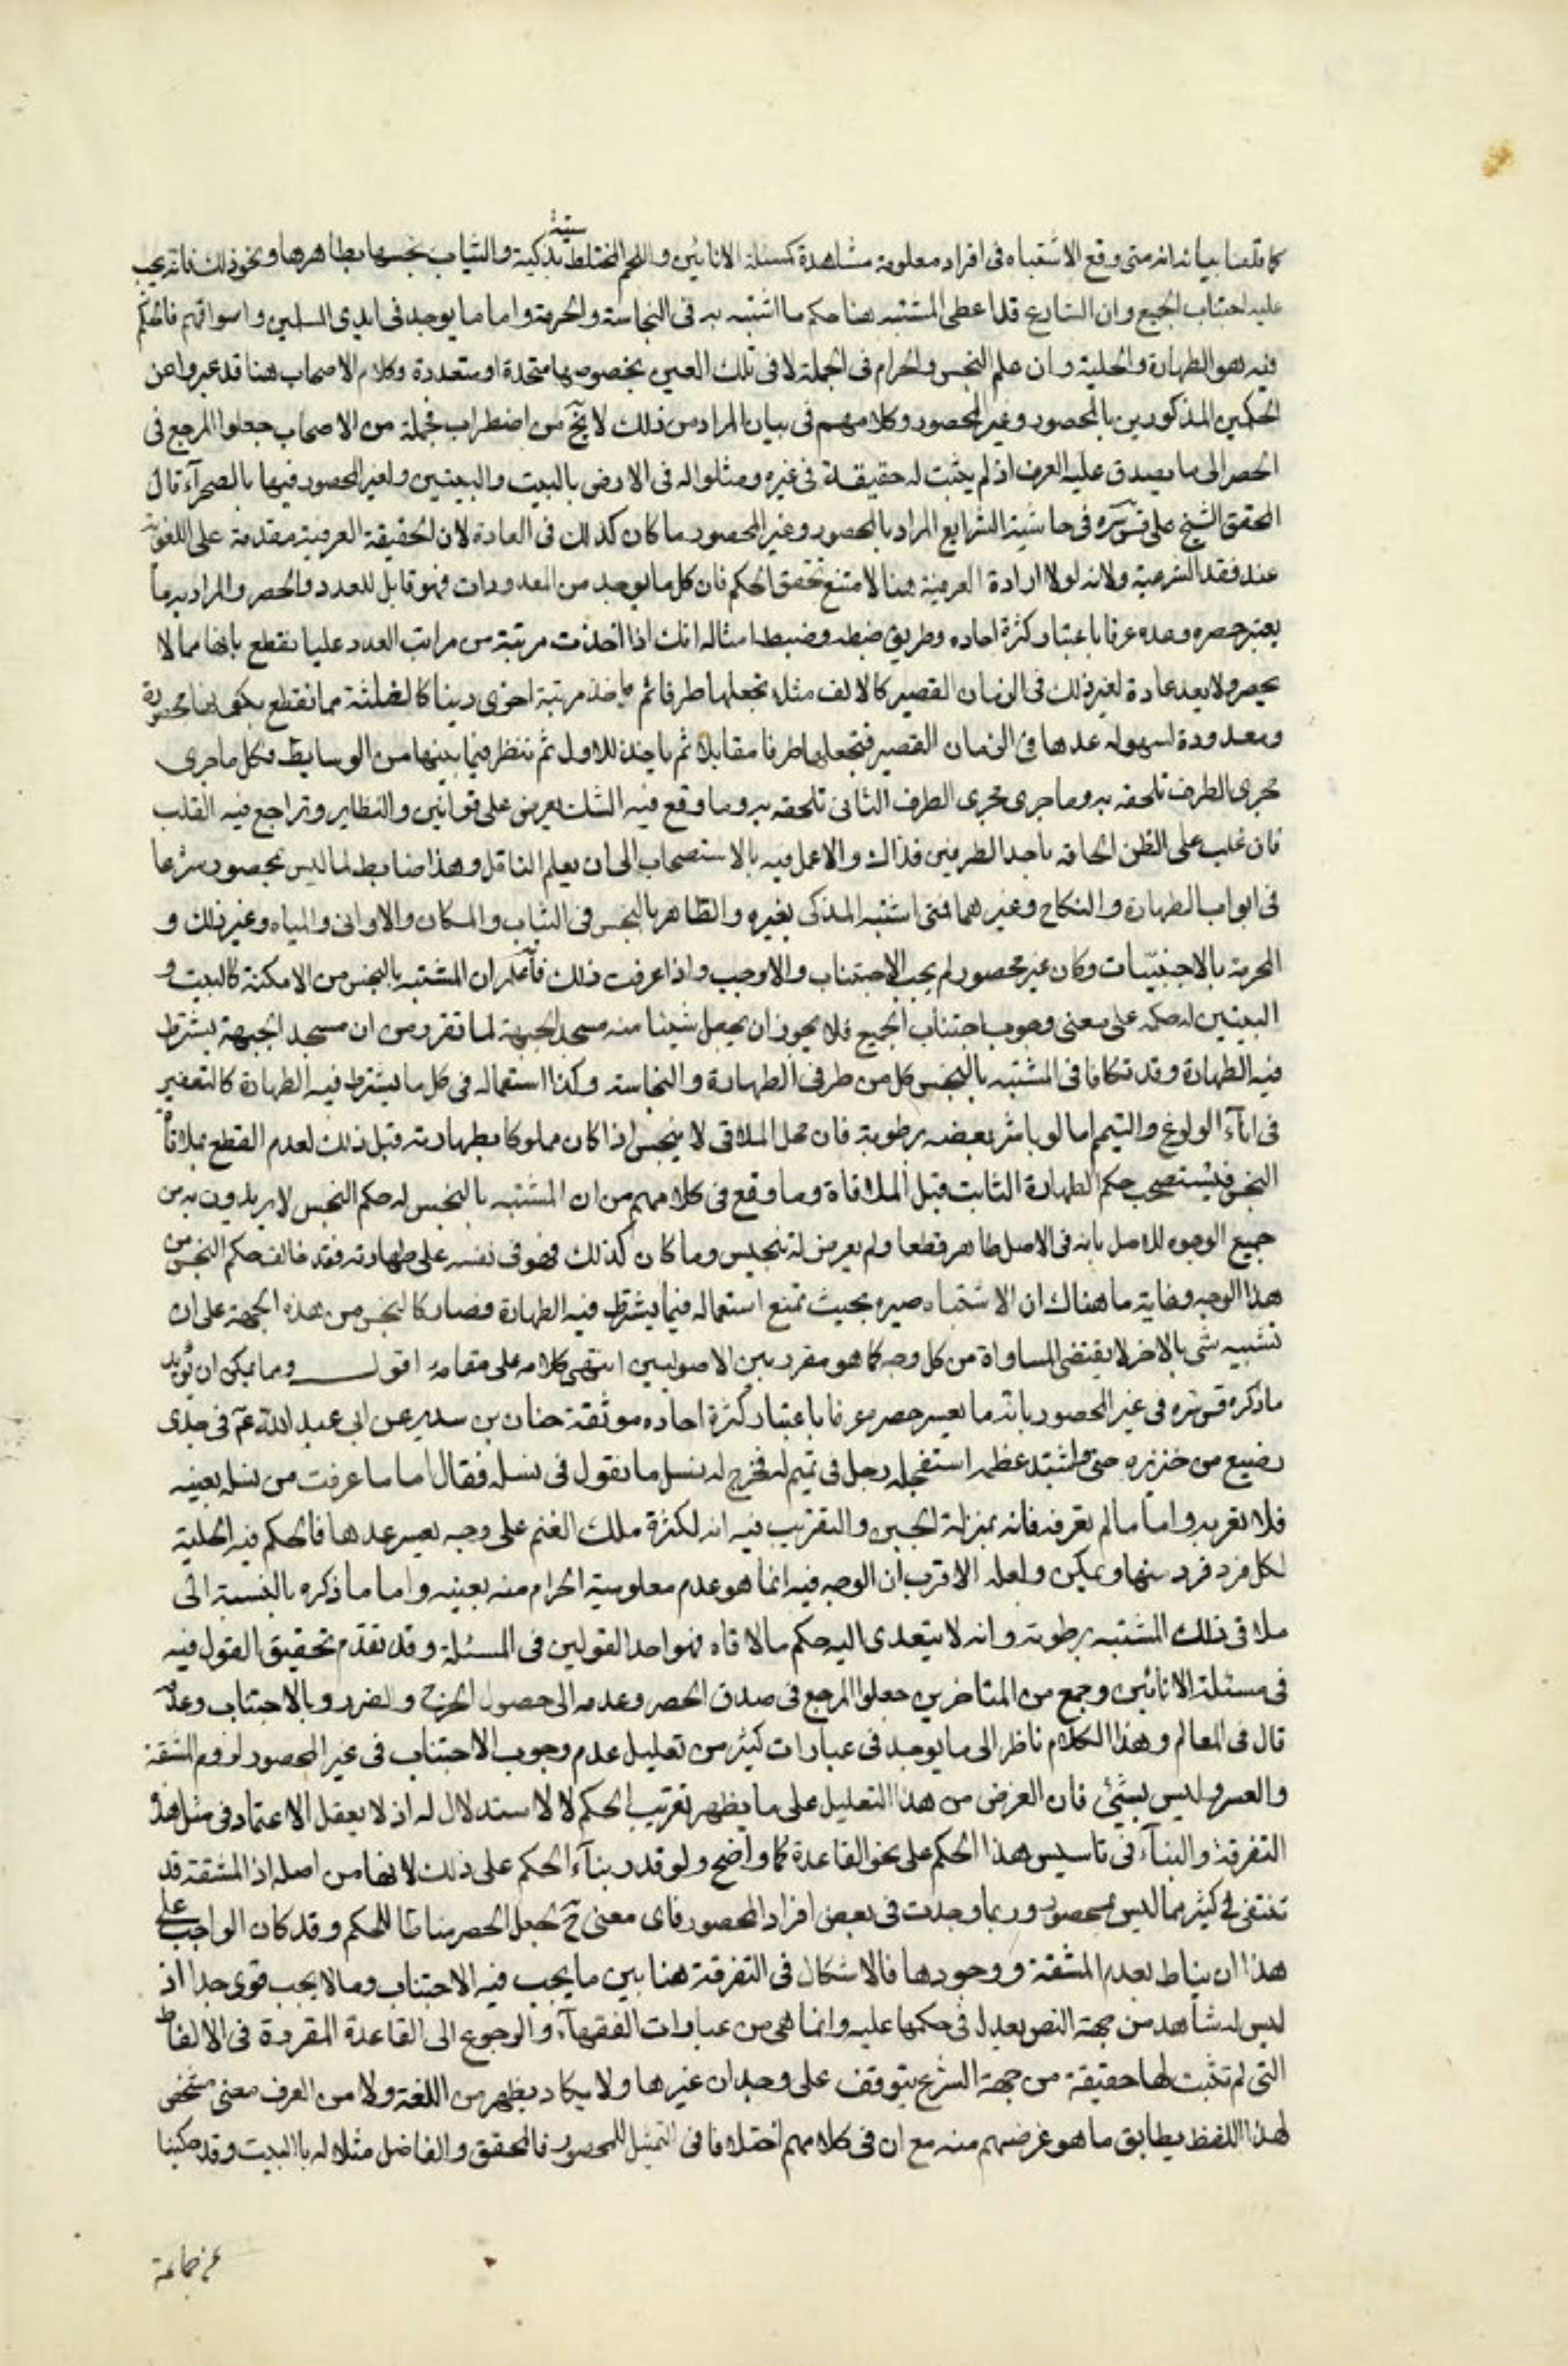 كما قدمنا بيانه انه متى وقع الاشتباه فى افراد معلومة مشاهدة كمسئلة الانائين واللحم المختلط ميتة بذكية والثياب نجسها بطاهرها ونحو ذلك فانه يجب
عليه اجتناب الجميع وان الشارع قد اعطى المشتبه هنا حكم ما اشتبه به فى النجاسة والحرمة واما ما يوجد فى ايدى المسلمين واسواقهم فالحكم
فيه هو الطهارة والحلية وان علم النجس والحرام فى الجملة لا فى تلك العين بخصوصها متحدة او متعددة وكلام الاصحاب هنا قد عبروا عن
الحكمين المذكورين بالمحصور وغير المحصور وكلامهم فى بيان المراد من ذلك لا يخ من اضطراب فجملة من الاصحاب جعلوا المرجع فى
الحصر الى ما يصدق عليه العرف اذ لم يثبت له حقيقة فى غيره ومثلوا له فى الارض بالبيت والبيتين ولغير المحصور فيها بالصحرآء قال
المحقق الشيخ على قس سره فى حاشية الشرايع المراد بالمحصور وغير المحصور ما كان كذلك فى العادة لان الحقيقة العرفية مقدمة على اللغوية
عند فقد الشرعية ولانه لولا ارادة العرفية هنا لامتنع تحقق الحكم فان كل ما يوجد من المعدودات فهو قابل للعدد والحصر والمراد به ما
يعتبر حصره وعده عرفا باعتبار كثرة احاده وطريق ضبطه وضبط امثاله انك اذا اخذت مرتبة من مراتب العدد عليا تقطع بانها مما لا
يحصر ولا يعد عادة لغير ذلك فى الزمان القصير كالالف مثلا تجعلها طرفا ثم تاخذ مرتبة اخرى دينا كالثلثة مما نقطع بكونها محصورة
ومعدودة لسهولة عدها فى الزمان القصير فتجعلها طرفا مقابلا ثم ياخذ للاول ثم ننظر فيما بينهما من الوسايط فكل ما جرى
مجرى الطرف تلحقه به وما جرى مجرى الطرف الثانى تلحقه به وما وقع فيه الشك يعرض على قوانين والنظاير وتراجع فيه القلب
فان غلب على الظن الحاقه باحد الطرفين فذاك والا عمل فيه بالاستصحاب الى ان يعلم الناقل وهذا ضابط لما ليس بمحصور شرعا
فى ابواب الطهارة والنكاح وغيرهما فمتى اشتبه المذكى بغيره والظاهر بالنجس فى الثياب والمكان والاوانى والمياه وغير ذلك و
المحرمة بالاجنبيّات وكان غير محصور لم يجب الاجتناب والا وجب واذا عرفت ذلك فآعلم ان المشتبه بالنجس من الامكنة كالبيت و
البيتين له حكمه على معنى وجوب اجتناب الجميع فلا يجوز ان يجعل شيئا منه مسجد الجبهة لما تقرر من ان مسجد الجبهة يشترط
فيه الطهارة وقد تكافا فى المشتبه بالنجس كل من طرفى الطهارة والنجاسة وكذا استعماله فى كل ما يشترط فيه الطهارة كالتعفير
فى انآء الولوغ والتيمم اما لو باشر بعضه برطوبة فان محل الملاقى لا ينجس اذا كان مملوكا بطهارته قبل ذلك لعدم القطع بملاقاة
النجس فيستصحب حكم الطهارة الثابت قبل الملاقاة وما وقع فى كلامهم من ان المشتبه بالنجس له حكم النجس لا يريدون به من
جميع الوجوه للاصل بانه فى الاصل طاهر قطعا ولم يعرض له تنجيس وما كان كذلك فهو فى نفسه على طهارته فقد خالف حكم النجس من
هذا الوجه وغاية ما هناك ان الاشتباه صيره بحيث تمنع استعماله فيما يشترط فيه الطهارة فصار كالنجس من هذه الجهة على ان
تشبيه شى بالاخر لا يقتضى المساواة من كل وجه كما هو مقرر بين الاصوليين انتهى كلامه على مقامه اقول ومما يمكن ان تؤيد
ما ذكره قس سره فى غير المحصور بانه ما يعسر حصره عرفا باعتبار كثرة احاده موثقة حنان بن سدير عن ابى عبد الله ع فى جدى
رضع من خنزيره حتى اشتد عظمه استفحله رجل فى غنم له فخرج له نسل ما نقول فى نسله فقال اما ما عرفت من نسله بعينه
فلا تقربه واما ما لم تعرفه فانه بمنزلة الجبن والتقريب فيه انه لكثرة ملك الغنم على وجه يعسر عدها فالحكم فيه الحلية
لكل فرد فرد منها ويمكن ولعله الاقرب ان الوجه فيه انما هو عدم معلومية الحرام منه بعينه واما ما ذكره بالنسبة الى
ملاقى ذلك المشتبه برطوبة وانه لا يتعدى اليه حكم ما لاقاه فهو احد القولين فى المسئلة وقد تقدم تحقيق القول فيه
فى مسئلة الانائين وجمع من المتاخرين جعلوا المرجع فى صدق الحصر وعدمه الى حصول الحرج والضرر وبالاجتناب وعدمه
قال فى المعالم وهذا الكلام ناظر الى ما يوجد فى عبارات كثير من تعليل عدم وجوب الاجتناب فى غير المحصور لزوم المشقة
والعسر وليس بشئ فان الغرض من هذا التعليل على ما يظهر تقريب الحكم لا الاستدلال له اذ لا يعقل الاعتماد فى مثل هذه
التفرقة والبنآء فى تاسيس هذا الحكم على نحو القاعدة كما واضح ولو قدر بنآء الحكم على ذلك لانها من اصله اذ المشقة قد
تنتفى فى كثير مما ليس بمحصور وربما وجدت فى بعض افراد المحصور فاى معنى ح لجعل الحصر مناطا للحكم وقد كان الواجب على
هذا ان يناط بعدم المشقة ووجودها فالاشكال فى التفرقة هنا بين ما يجب فيه الاجتناب وما لا يجب قوى جدا اذ
ليس له شاهد من جهة النص يعدل فى حكمها عليه وانما هى من عبارات الفقهآء والرجوع الى القاعدة المقررة فى الالفاظ
التى لم تثبت لها حقيقة من جهة الشرع يتوقف على وجدان غيرها ولا يكاد يظهر من اللغة ولا من العرف معنى مشخص
لهذا اللفظ يطابق ما هو غرضهم منه مع ان فى كلامهم اختلافا فى التمثيل للمحصور فالمحقق والفاضل مثلا له بالبيت وقد حكينا
عن جماعة